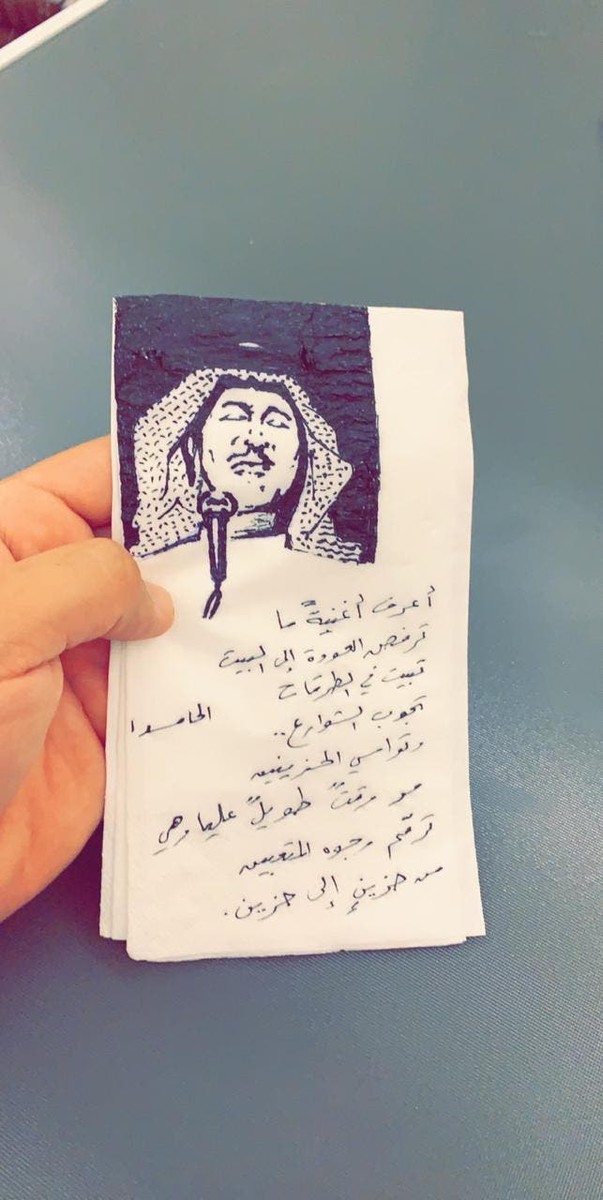 أعرف أغنيةً ما
ترفض العودة إلى البيت
تبيت في الطرقات
تجوب الشوارع..
وتواسي الحزينين
مر وقتٌ طويلٌ عليها وهي
ترمّم وجوه المتعبين
من حزينٍ إلى حزين.